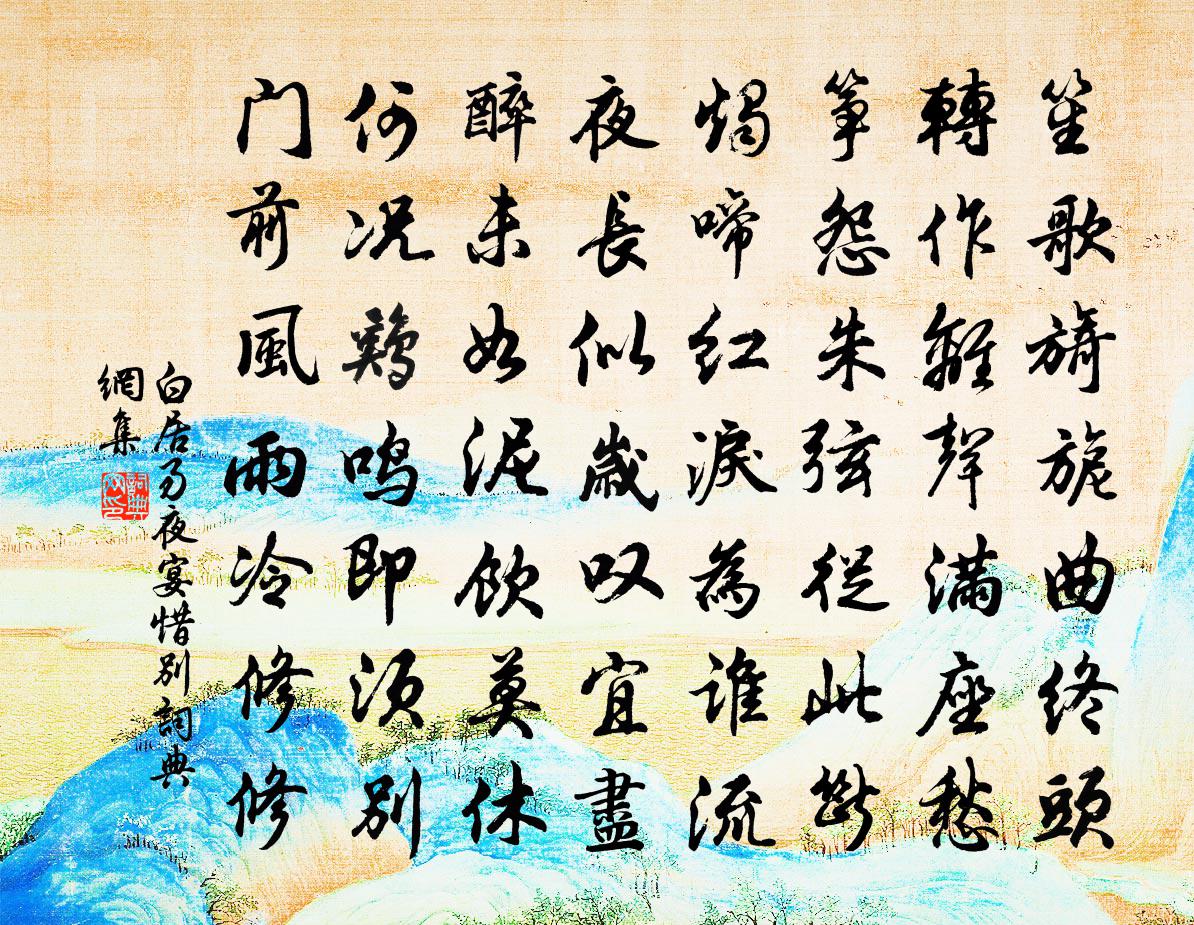 笙歌旖旎曲终頭
轉作離聲满座愁
筝怨朱弦從此断
燭啼红淚為谁流
夜長似歲叹宜盡
醉未如泥飲莫休
何况鷄鸣即须别
门前風雨冷修修
白居易夜宴惜别詞典
網集
詞典網印